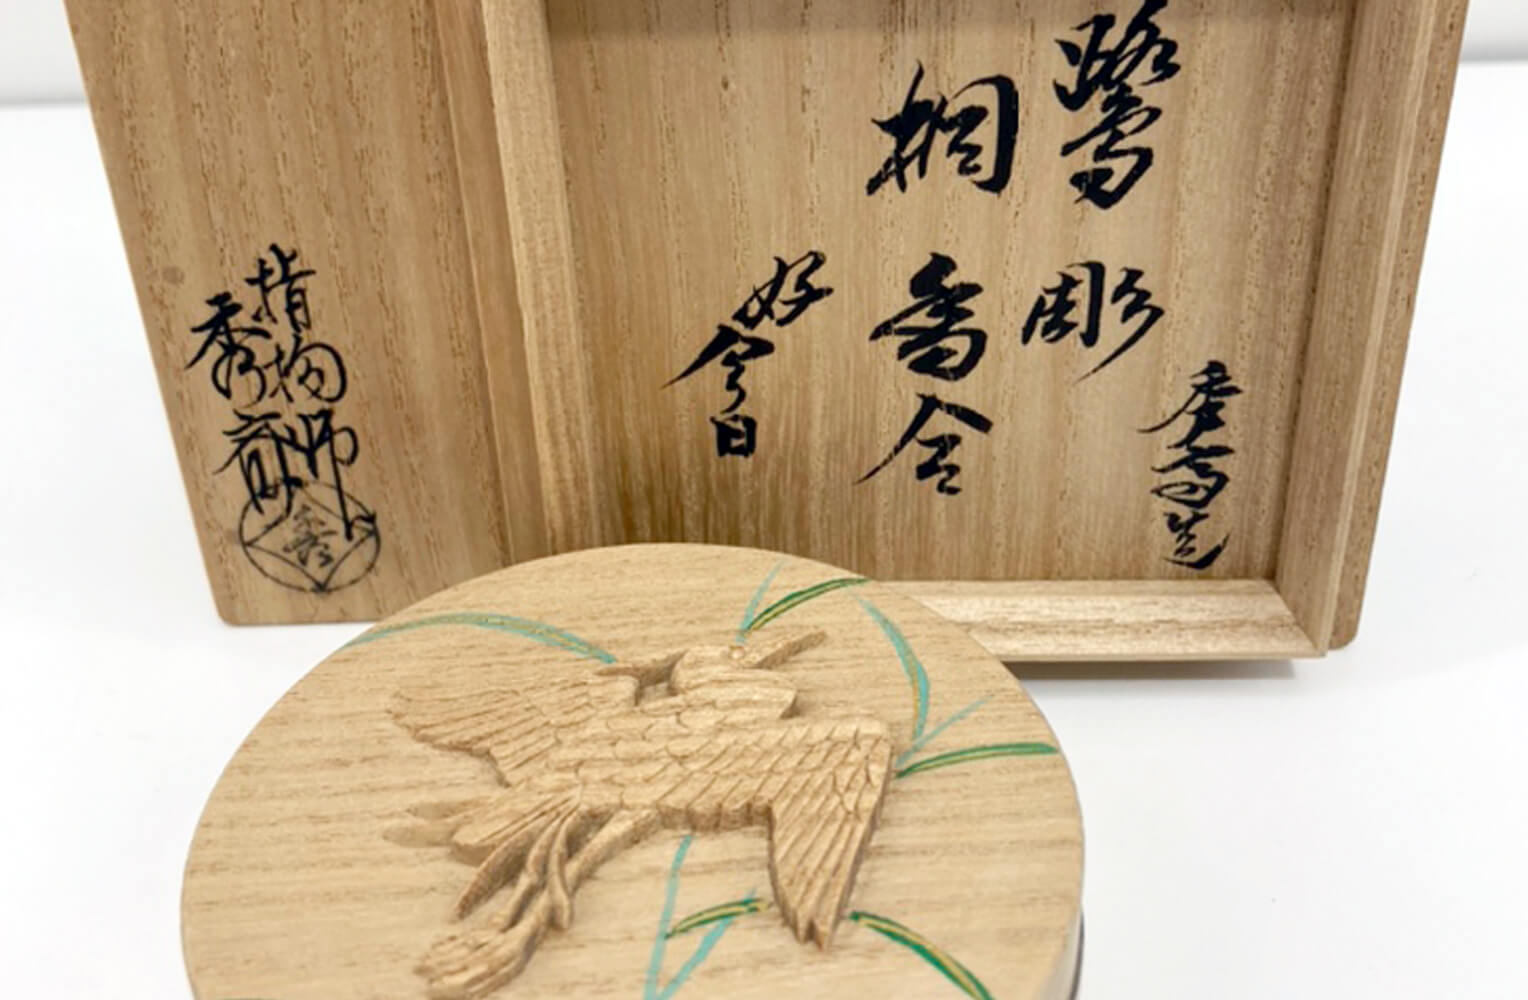 鷺彫
桐香合
好今日
指物師
秀斎
秀